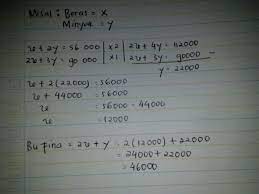 Misal : Beras = x
Minyak = y
x + 2y = 56 000 | x2 | 2x + 4y = 112000
2x + 3y = 90 000 | x1 | 2x + 3y = 90000 -
y = 22000
x + 2(22000) = 56000
x + 44000 = 56000
x = 56000 - 44000
x = 12000
Bu fina = 2x + y = 2(12000) + 22000
= 24000 + 22000
= 46000